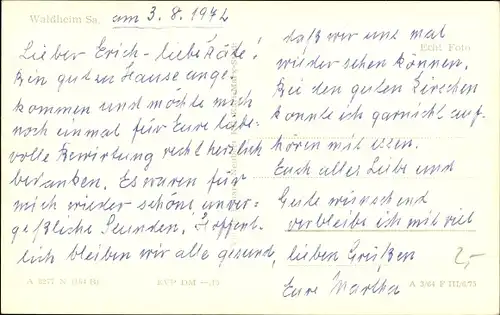 Waldheim Sa.
am 3.8.1972
Lieber Erich - liebe Käte!
Bin gut zu Hause ange-
kommen und möchte mich
noch einmal für Eure liebe-
volle Bewirtung recht herzlich
bedanken. Es waren für
mich wieder schöne unver-
geßliche Stunden. Hoffent-
lich bleiben wir alle gesund,
daß wir uns mal
Echt Foto
wieder sehen können.
Bei den guten Kirschen
konnte ich garnicht auf-
hören mit essen.
Euch alles Liebe und
Gute wünschend
verbleibe ich mit viel
lieben Grüßen
Eure Martha
2,-
A 3/64 F III/6/73